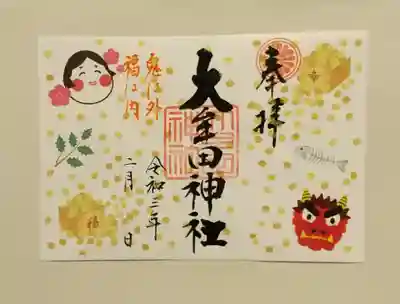 奉拝
大牟田神社
鬼は外
福は内
令和三年
二月 日
福